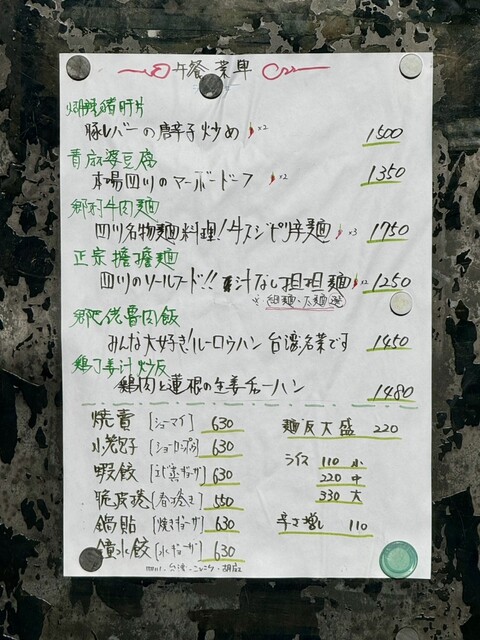 午餐 菜単
豚レバーの唐辛子炒め ×2 1500
青麻婆豆腐
本場四川のマーボードーフ ×2 1350
郷村牛肉麺
四川名物麺料理!牛スジピリ辛麺 ×3 1750
正宗擔擔麺
四川のソールフード!! 汁なし担担麺 ×2 1250
※ 細麺・太麺
魯肉飯
みんな大好き!ルーロウハン 台湾名菜です 1450
鶏丁姜汁炒反
鶏肉と蓮根の生姜チャーハン 1480
焼賣 [シューマイ] 630
[ショーロンポウ] 630
蝦餃 [エビ蒸ギョーザ] 630
[春巻き] 550
鍋貼 [焼きギョーザ] 630
水餃 [水ギョーザ] 630
麺反大盛 220
ライス 110 小
220 中
330 大
辛さ増し 110